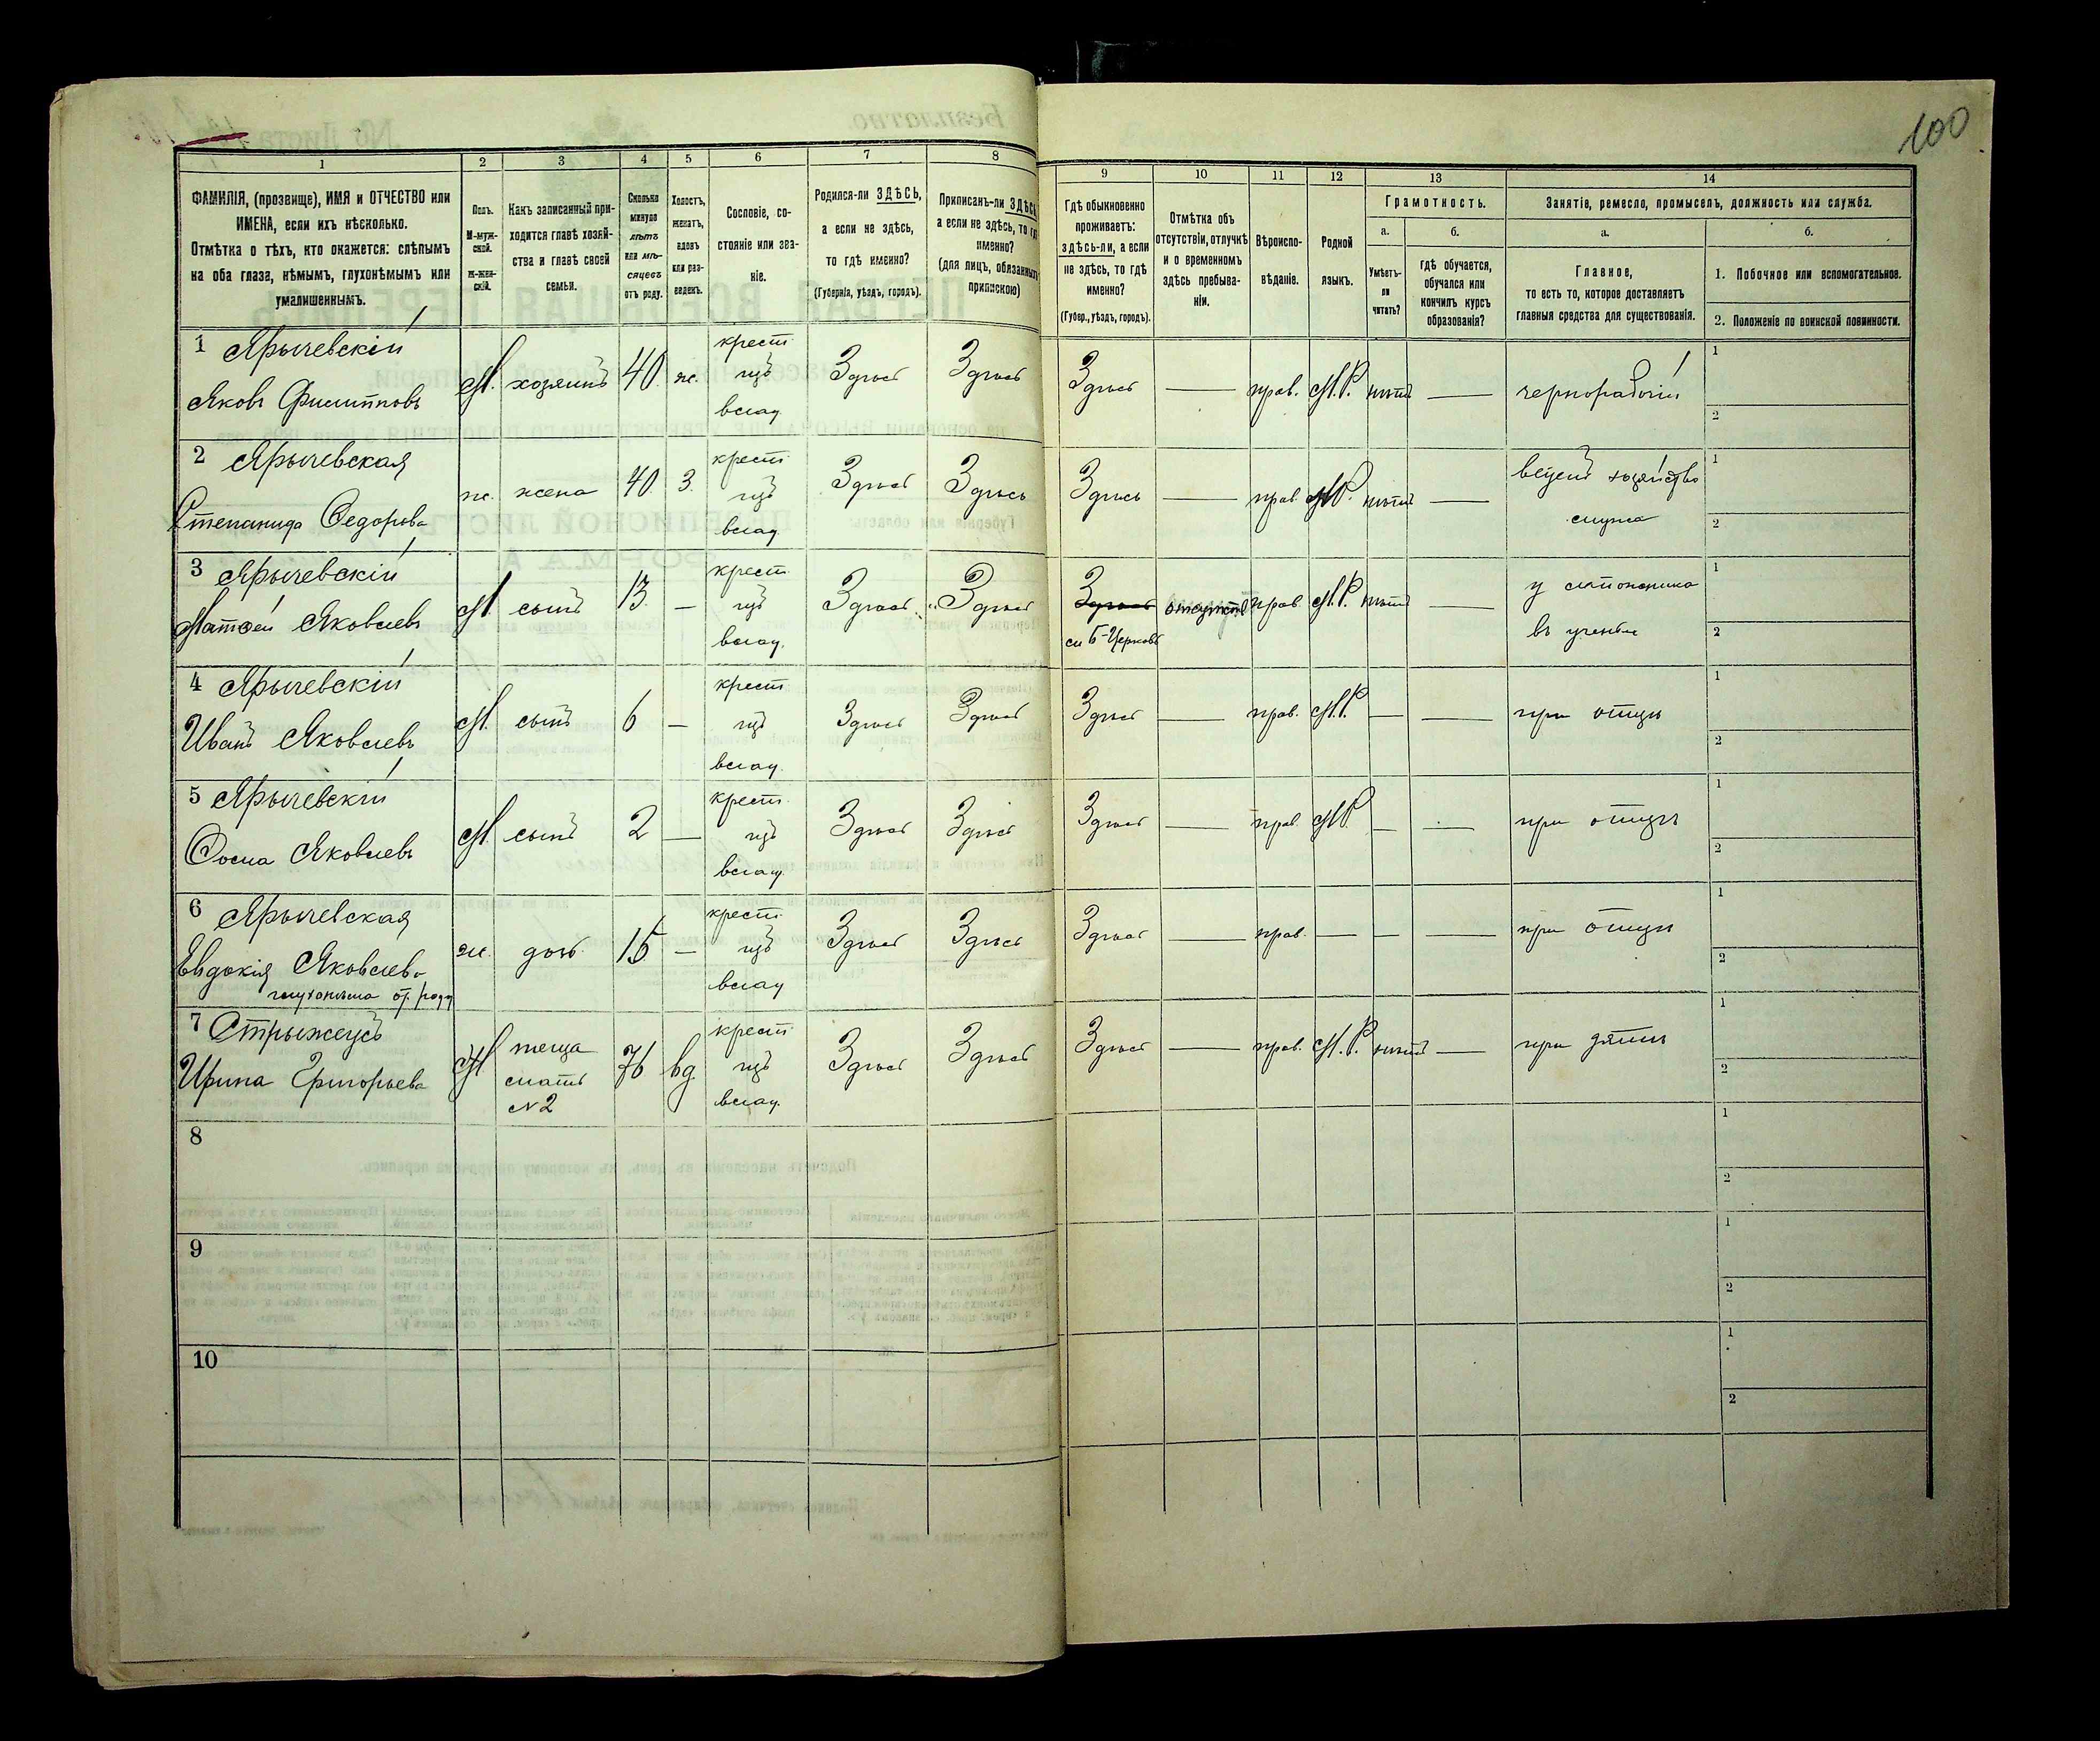 100
1 2 3 4 5 6 7 8 9 10 11 12 13 14
ФАМИЛІЯ, (прозвище), ИМЯ и ОТЧЕСТВО или
ИМЕНА, если ихъ нѣсколько.
Отмѣтка о тѣхъ, кто окажется: слѣпымъ
на оба глаза, нѣмымъ, глухонѣмымъ или
умалишеннымъ.
Полъ.
М-муж-
ской.
ж-жен-
скій.
Какъ записанный при-
ходится главѣ хозяй-
ства и главѣ своей
семьи.
Сколько
минуло
лѣтъ
или мѣ-
сяцевъ
отъ роду.
Холостъ,
женатъ,
вдовъ
или раз-
веденъ.
Сословіе, со-
стояніе или зва-
ніе.
Родился-ли ЗДѢСЬ,
а если не здѣсь,
то гдѣ именно?
(Губернія, уѣздъ, городъ).
Приписанъ-ли ЗДѢСЬ
а если не здѣсь, то гдѣ
именно?
(для лицъ, обязанныхъ
припискою)
Гдѣ обыкновенно
проживаетъ:
здѣсь-ли, а если
не здѣсь, то гдѣ
именно?
(Губер., уѣздъ, городъ).
Отмѣтка объ
отсутствіи, отлучкѣ
и о временномъ
здѣсь пребыва-
ніи.
Вѣроиспо-
вѣданіе.
Родной
языкъ.
Грамотность.
а.
Умѣетъ-
ли
читать?
б.
гдѣ обучается,
обучался или
кончилъ курсъ
образованія?
Занятіе, ремесло, промыселъ, должность или служба.
а.
Главное,
то есть то, которое доставляетъ
главныя средства для существованія.
б.
1. Побочное или вспомогательное.
2. Положеніе по воинской повинности.
1 Ярычевскій
Яковъ Филипповъ
М. хозяинъ 40. ж.
крест.
изъ
влад.
Здѣсь Здѣсь Здѣсь — прав. М.Р. нѣтъ — чернорабочій
1
2
2 Ярычевская
Степанида Ѳедорова
ж. жена 40. З.
крест.
изъ
влад.
Здѣсь Здѣсь Здѣсь — прав. М.Р. нѣтъ —
ведетъ хозяйство
мужа
1
2
3 Ярычевскій
Матѳей Яковлевъ
М. сынъ 13. —
крест.
изъ
влад.
Здѣсь Здѣсь Здѣсь
Б-Церковь
отсутств прав. М.Р. нѣтъ —
у сапожника
въ ученьи
1
2
4 Ярычевскій
Иванъ Яковлевъ
М. сынъ 6 —
крест
изъ
влад.
Здѣсь Здѣсь Здѣсь — прав. М.Р. — — при отцѣ
1
2
5 Ярычевскій
Ѳома Яковлевъ
М. сынъ 2 —
крест.
изъ
влад.
Здѣсь Здѣсь Здѣсь — прав. М.Р. — — при отцѣ
1
2
6 Ярычевская
Евдокія Яковлева
глухонѣма от. роду
ж. дочь. 15. —
крест.
изъ
влад
Здѣсь Здѣсь Здѣсь — прав. — — — при отцѣ
1
2
7
Ирина Григорьева
М
теща
мать
№2
76 вд.
крест.
изъ
влад.
Здѣсь Здѣсь Здѣсь — прав. М.Р. нѣтъ — при дѣтяхъ
1
2
8
1
2
9
1
2
10
1
2